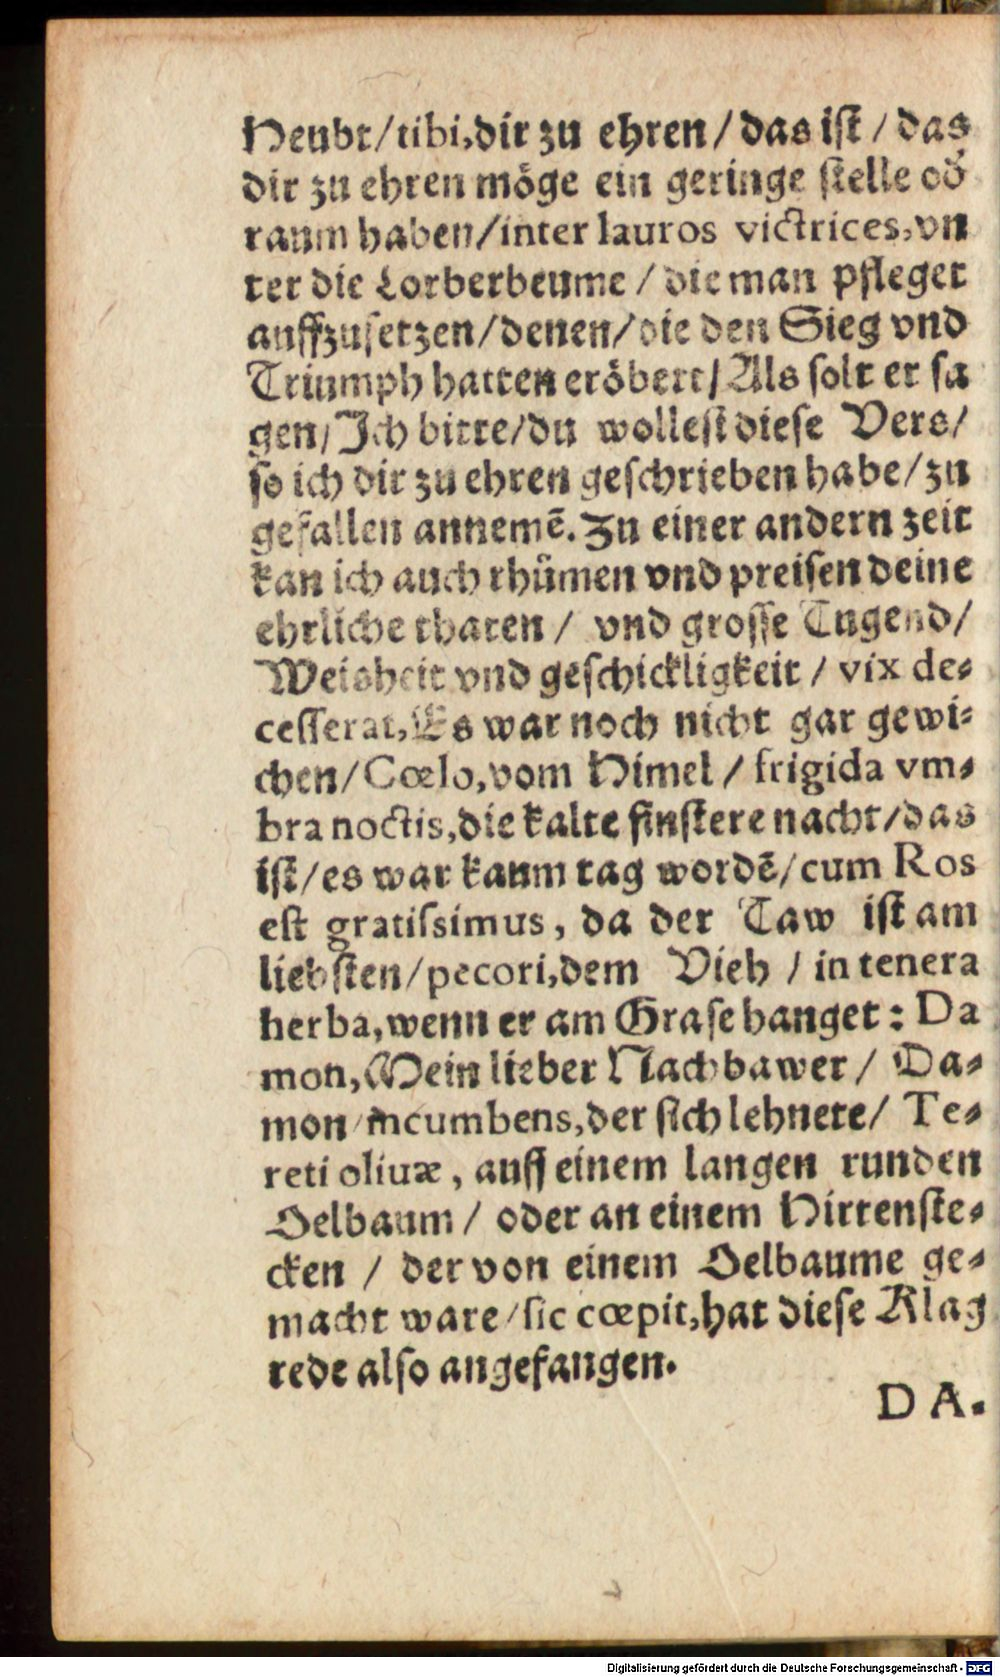 Heubt/tibi,dir zu ehren/das iſt/das
dir zu ehren möge ein geringe ſtelle od̛
raum haben/inter lauros victrices,vn
ter die Lorberbeume/die man pfleget
auffzuſetzen/denen/die den Sieg vnd
Triumph hatten eröbert/Als ſolt er ſa
gen/Ich bitte/du wolleſt dieſe Vers/
ſo ich dir zu ehren geſchrieben habe/zu
gefallen annemē. Zu einer andern zeit
kan ich auch rhümen vnd preiſen deine
ehrliche thaten/ vnd groſſe Tugend/
Weisheit vnd geſchickligkeit/vix de⸗
ceſſerat,Es war noch nicht gar gewi⸗
chen/Cœlo,vom Himel/frigida vm⸗
bra noctis,die kalte finſtere nacht/das
iſt/es war kaum tag wordē/cum Ros
eſt gratiſsimus, da der Taw iſt am
liebſten/pecori,dem Vieh/in tenera
herba,wenn er am Graſe hanget: Da
mon,Mein lieber Nachbawer/ Da⸗
mon incumbens,der ſich lehnete/ Te⸗
reti oliuæ, auff einem langen runden
Oelbaum/ oder an einem Hirtenſte⸗
cken/ der von einem Oelbaume ge⸗
macht ware/ſic cœpit,hat dieſe Klag
rede alſo angefangen.
DA.
Digitalisierung gefördert durch die Deutsche Forschungsgemeinschaft - DFG